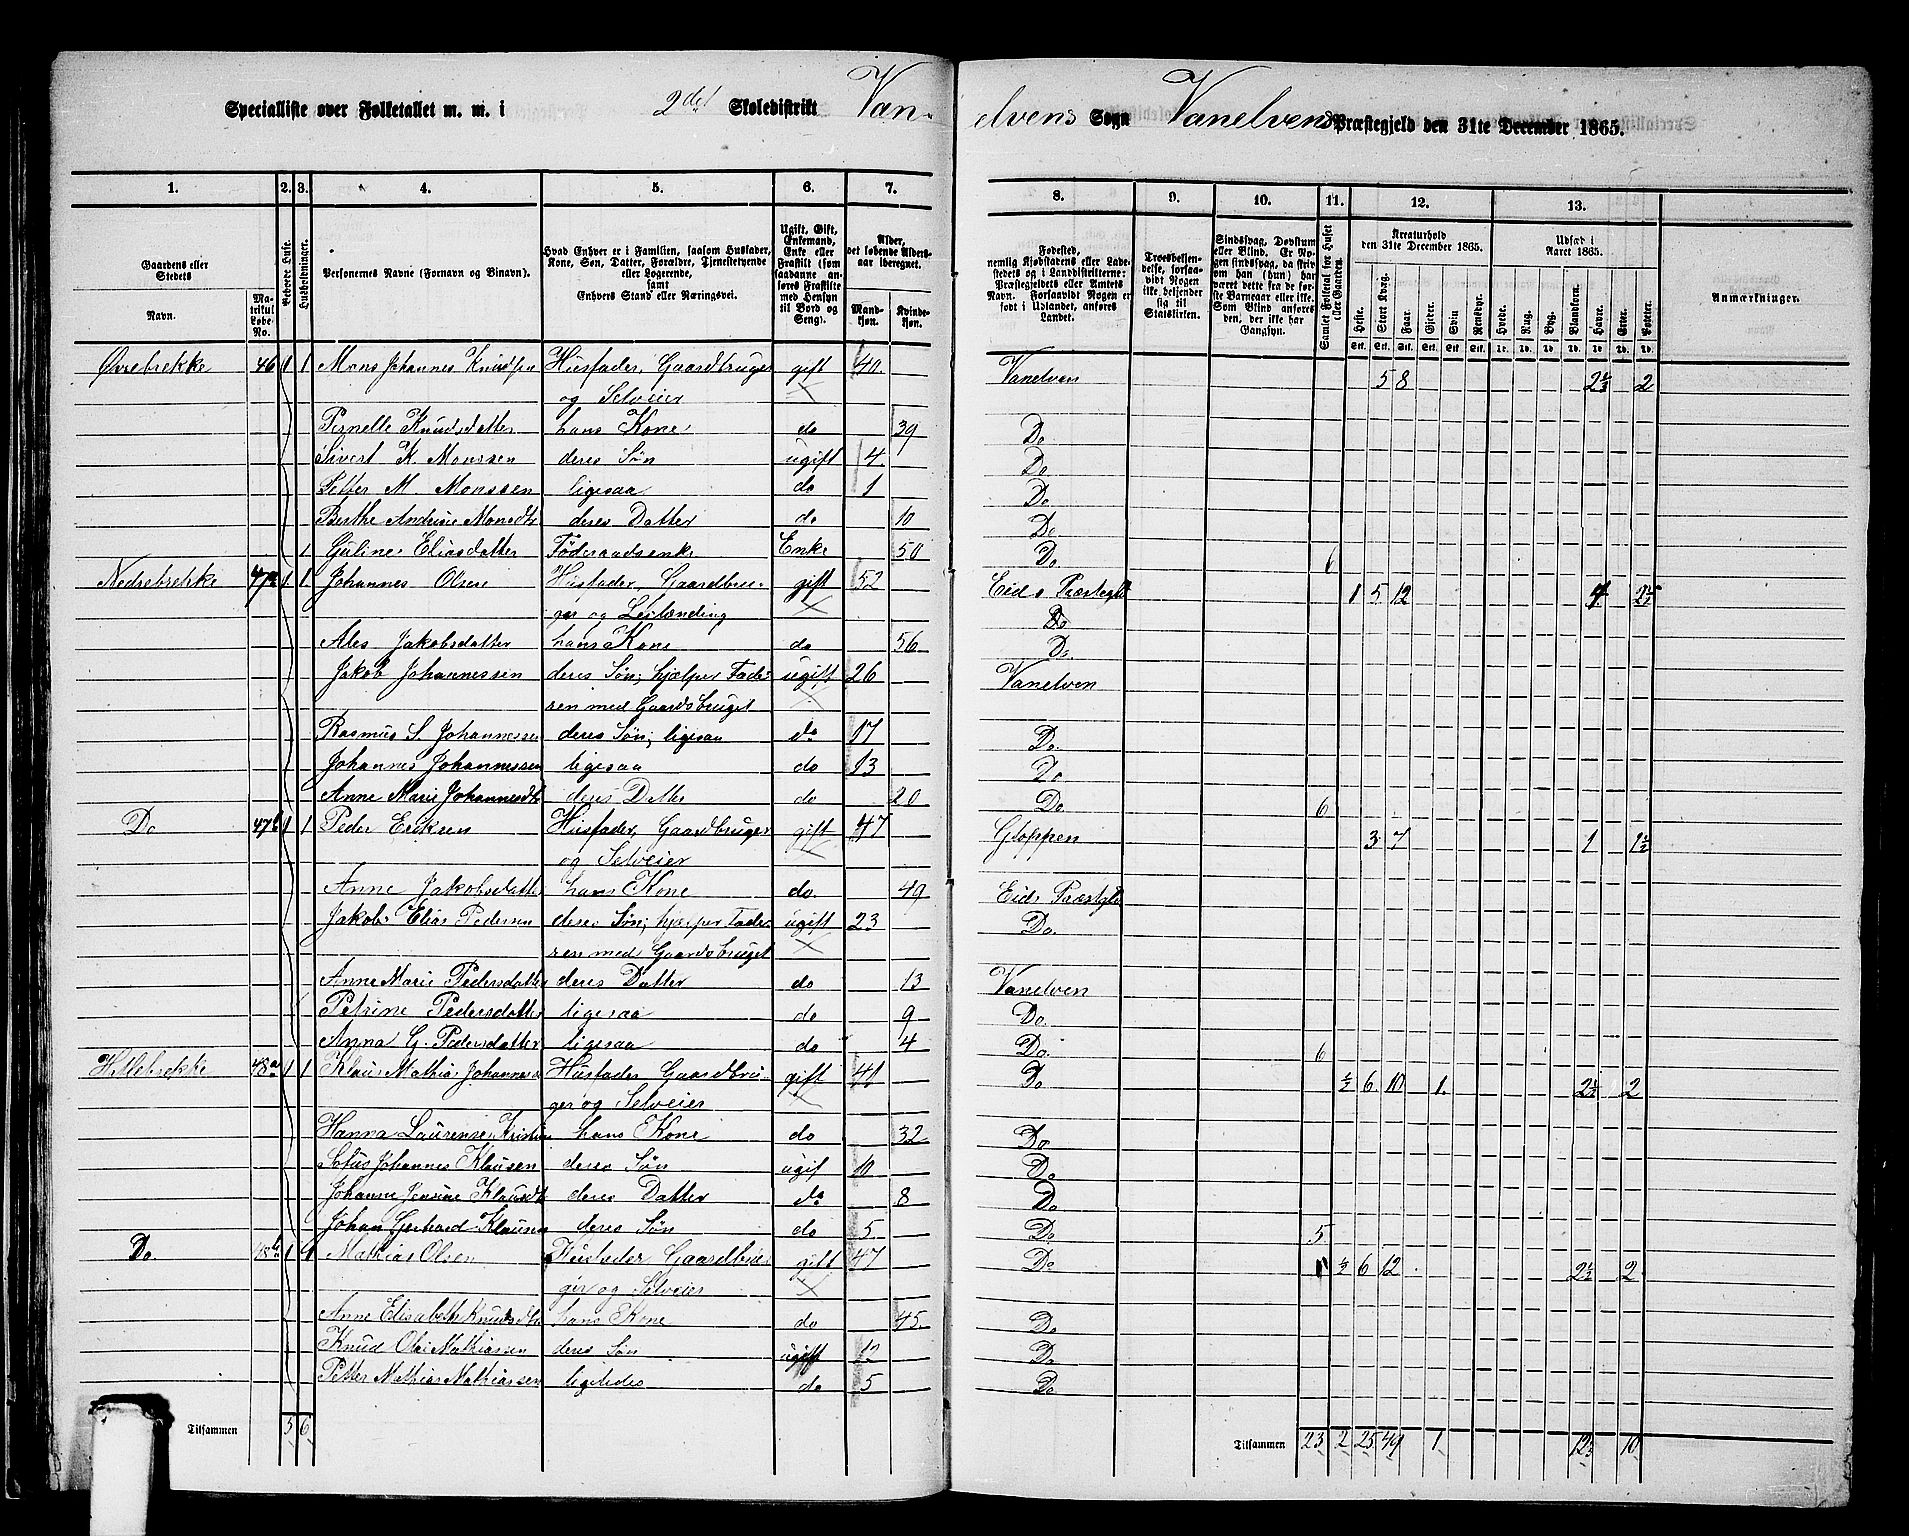 Specialliste over Folketallet m. m. i 2det Skoledistrikt Van-elvens Sogn Vanelvens Præstegjeld den 31te December 1865.
1. 2. 3. 4. 5. 6. 7. 8. 9. 10. 11. 12. 13.
Gaardens eller Stedets Navn. Matrikul Løbe-No. Beboede Huse. Husholdninger. Personernes Navne (Fornavn og Binavn). Hvad Enhver er i Familien, saasom Husfader, Kone, Søn, Datter, Forældre, Tjenestetyende eller Logerende, samt Enhvers Stand eller Næringsvei. Ugift, Gift, Enkemand, Enke eller Fraskilt (som saadanne anføres Fraskilte med Hensyn til Bord og Seng). Alder, det løbende Alders-aar iberegnet. Mandkjøn. Kvindekjøn.
Fødested, nemlig Kjøbstadens eller Ladestedets og i Landdistrikterne: Præstegjeldets eller Amtets Navn. Forsaavidt Nogen er født i Udlandet, anføres Landet. Troesbekjendelse, forsaavidt Nogen ikke bekjender sig til Statskirken. Sindssvag, Døvstum eller Blind. Er Nogen sindssvag, da skrives om han (hun) har været dette fra de første Barneaar eller ikke. Som Blind anføres den, der ikke har Gangsyn. Samlet Folketal for Huset eller Gaarden. Kreaturhold den 31te December 1865. Udsæd i Aaret 1865. Anmærkninger.
Heste. Stort Kvæg. Faar. Gjeder. Svin. Rensdyr. Hvede. Rug. Byg. Blandkorn. Havre. Erter. Poteter.
Øvrebrekke 46 1 1 Mons Johannes Knudsen Husfader, Gaardbruger gift 40 Vanelven 5 8 2½ 2
og Selveier
Pernelle Knudsdatter hans Kone do 39 Do
Sivert K. Monssen deres Søn ugift 4 Do
Petter M. Monssen ligesaa do 1 Do
Berthe Andrine Monsdtr deres Datter do 10 Do
1 Guline Eliasdatter Føderaadsenke Enke 50 Do 6
Nedrebrekke 47a 1 1 Johannes Olsen Husfader, Gaardbru- gift 52 Eids Præstegld 1 5 12 4 2½
ger og Leilænding Do
Ales Jakobsdatter hans Kone do 56 Do
Jakob Johannessen deres Søn; hjælper Fade- ugift 26 Vanelven
ren med Gaardsbruget
Rasmus S. Johannessen deres Søn; ligesaa do 17 Do
Johannes Johannessen ligesaa do 13 Do
Anne Marie Johannesdtr deres Datter do 20 Do 6
Do 47b 1 1 Peder Eriksen Husfader, Gaardbruger gift 47 Gloppen 3 7 1 1½
og Selveier
Anne Jakobsdatter hans Kone do. 49 Eids Præstgld
Jakob Elias Pedersen deres Søn; hjelper Fade- ugift 23 Do.
ren med Gaardsbruget
Anne Marie Pedersdatter deres Datter do 13 Vanelven
Petrine Pedersdatter ligesaa do 9 Do.
Anna G. Pedersdatter ligesaa do 4 Do. 6
Hillebrekke 48a 1 1 Klaus Mathias Johannesen Husfader Gaardbru- gift 41 Do ½ 6 10 1. 2½ 2
ger og Selveier
Hanna Laurense Kristine hans Kone do 32 Do
Johannes Klausen deres Søn ugif 10 Do
Johanne Jensine Klausdtr deres Datter do 8 Do
Johan Gerhard Klausen deres Søn do 5 Do 5
Do. 48b 1 1 Mathias Olsen Husfader Gaardbru- gift 47 Do 1 ½ 6 12 2½ 2
ger og Selveier
Anne Elisabeth Knudsdtr hans Kone do 45. Do
Knud Ole Mathiassen deres Søn ugift 12 Do
Petter Mathias Mathiassen ligeledes do 5 Do
Tilsammen 5 6 Tilsammen 23 2 25 49 1 12½ 10